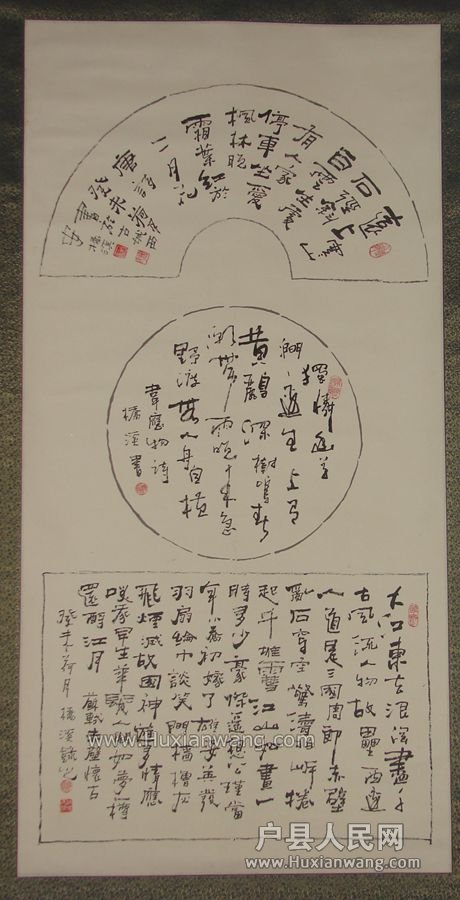 遠上寒山
石径斜
白雲生處
有人家
停車坐愛
楓林晚
霜葉紅於
二月花
唐詩
獨憐幽草
澗邊生上有
黄鸝深樹鳴春
潮帶雨晚来急
野渡無人舟自横
韋應物詩
橋溪書
大江東去浪淘盡千
古風流人物故壘西邊
人道是三國周郎赤壁
亂石穿空驚濤拍岸捲
起千堆雪江山如畫一
時多少豪傑遥想公瑾當
年小喬初嫁了雄姿英發
羽扇綸巾談笑間檣櫓灰
飛煙滅故國神遊多情應
笑我早生華髮人生如夢一樽
還酹江月蘇軾赤壁懷古
癸未荷月橋溪
www.Huxianwang.com
户县人民网
www.Huxianwang.com